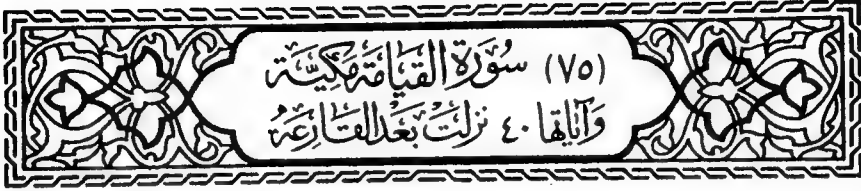 (٧٥) سُورَةُ القِيَامَةِ مَكِيَّة
وَآيَاتِهَا ٤٠ نَزَلَتْ بَعْدَ القَارِعَةِ